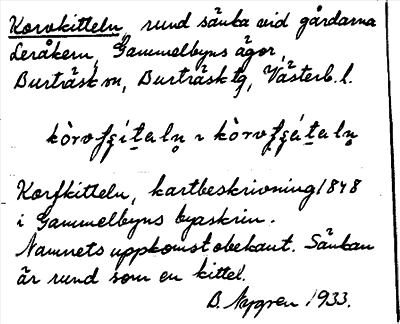 Korvkitteln, rund sänka vid gårdarna
Leråkern, Gammelbyns ägor,
Burträsk sn, Burträsk tg, Västerb. l.
Korfkitteln, kartbeskrivning 1848
i Gammelbyns byaskrin.
Namnets uppkomst obekant. Sänkan
är rund som en kittel.
B. Nygren 1933.